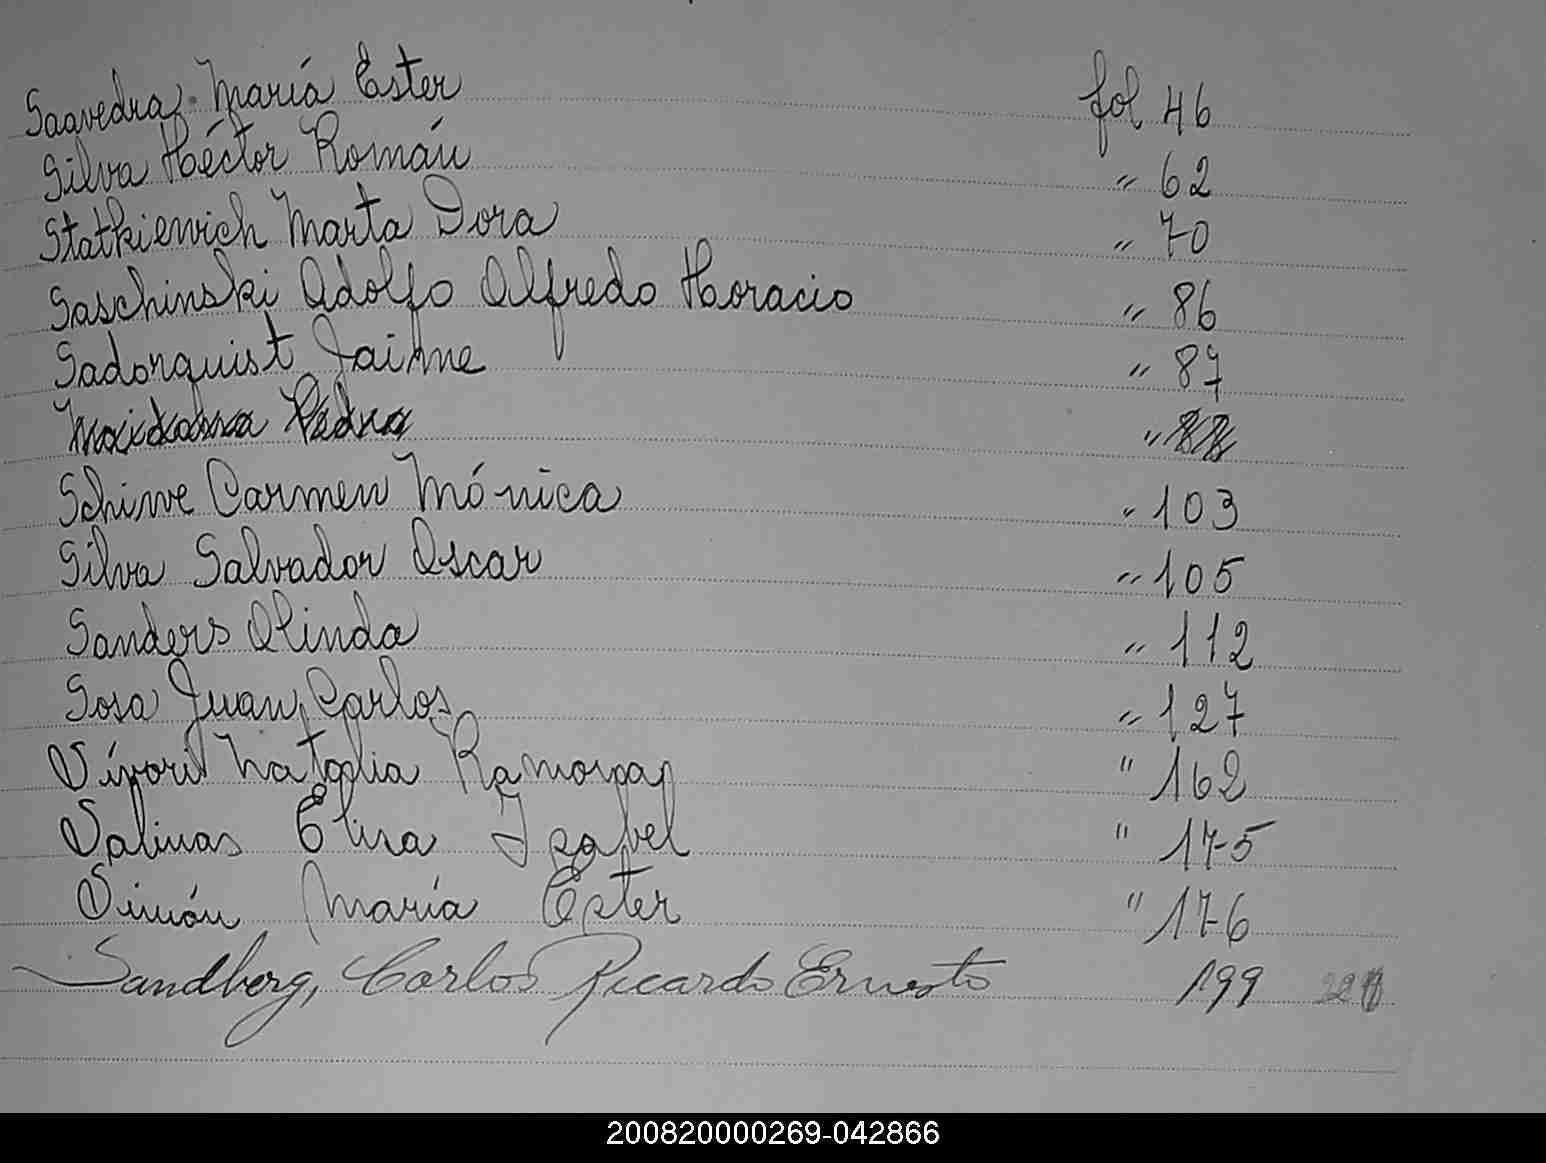 Saavedra María Ester fol 46
Silva Héctor Román " 62
Statkiewich Marta Dora " 70
Saschinski Adolfo Alfredo Horacio " 86
Sadorquist Jaime " 87
Pedro " 88
Schinve Carmen Mónica " 103
Silva Salvador Oscar " 105
Sanders Olinda " 112
Sosa Juan Carlos " 127
Sívori Natalia Ramona " 162
Salinas Elisa Isabel " 175
Simón María Ester " 176
Sandberg, Carlos Ricardo Ernesto 199
200820000269-042866